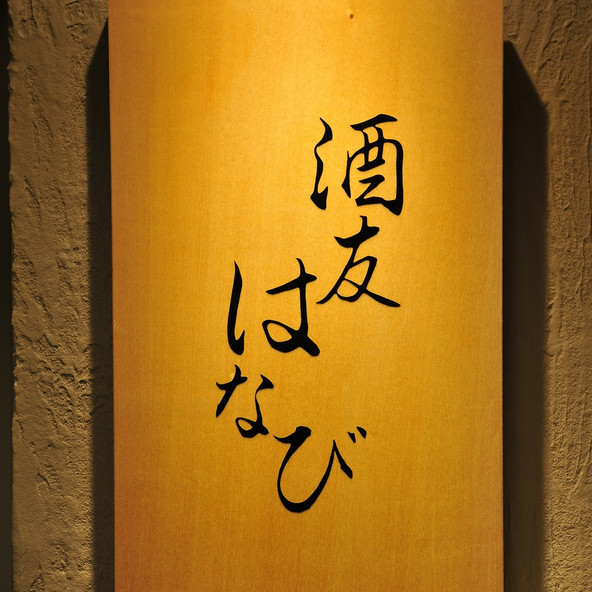 酒友
はなび